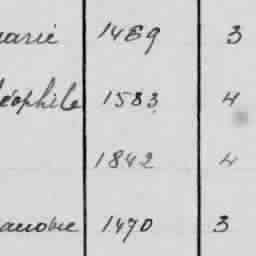 arie 1489 3
éophile 1583 4
1842 4
1470 3